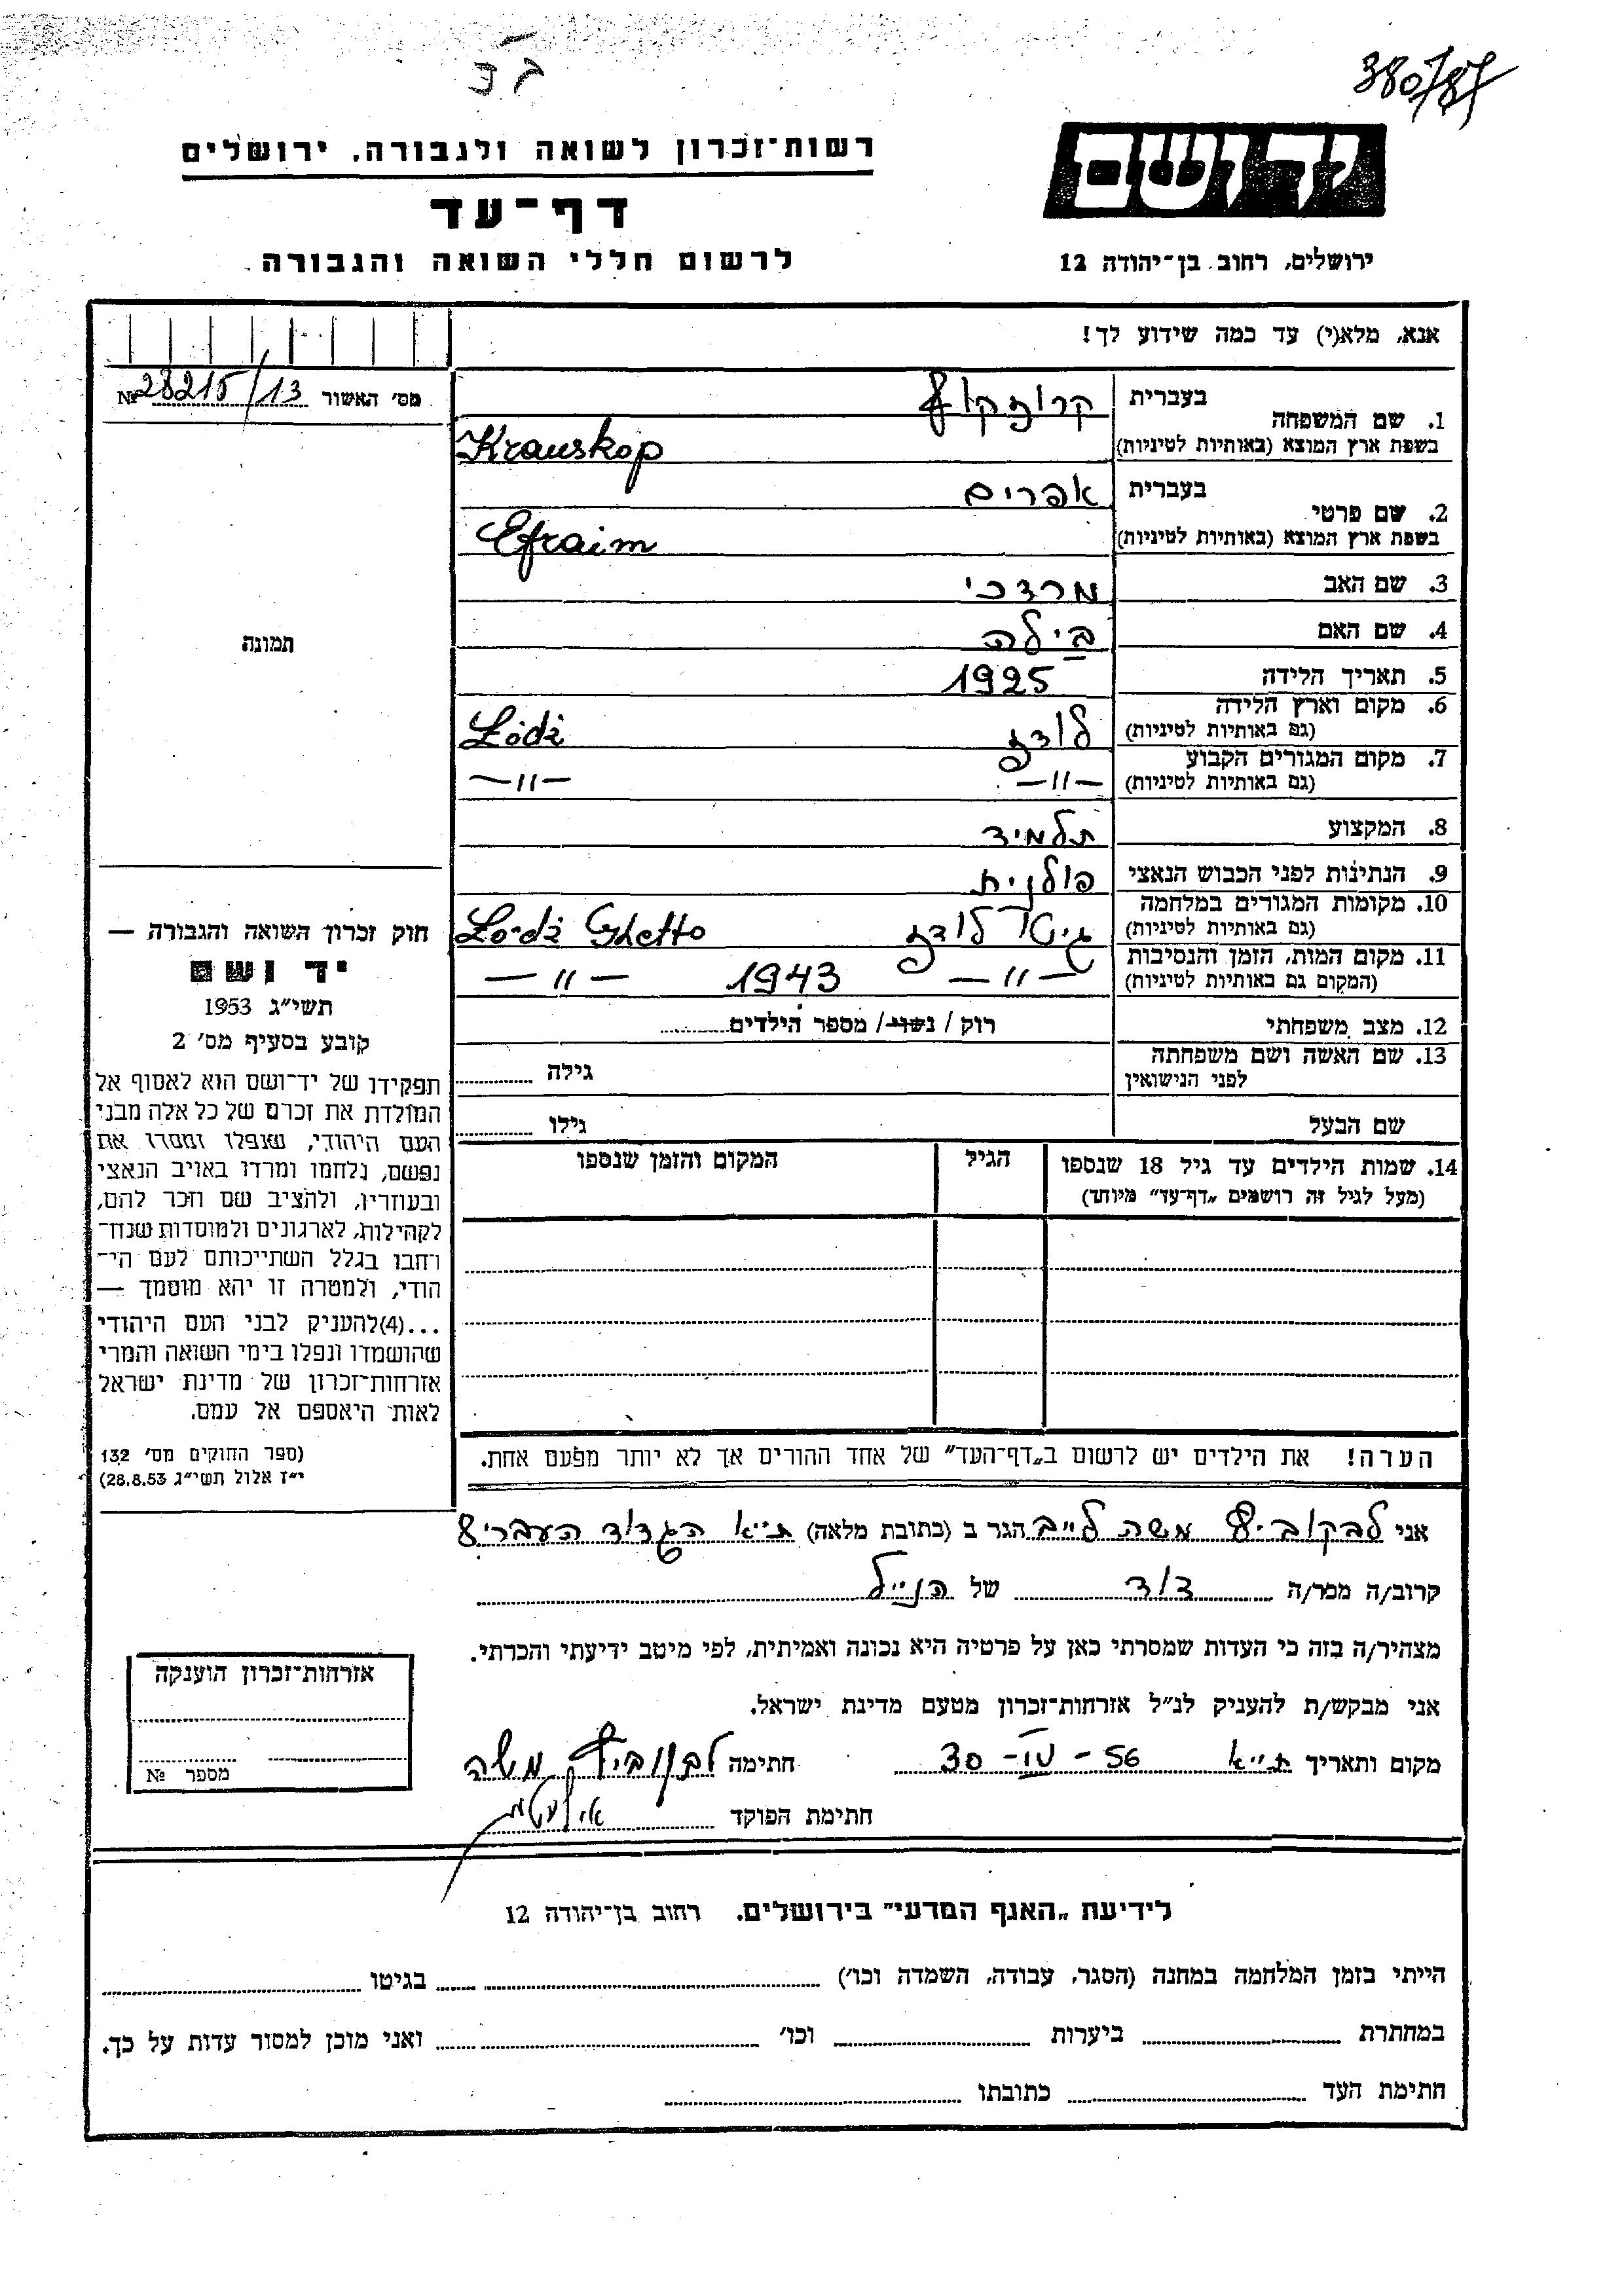 380/87
רשות־זכרון לשואה ולגבורה, ירושלים
דף־עד
לרשום חללי השואה והגבורה
יד ושם
ירושלים, רחוב בן־יהודה 12
אנא, מלא(י) עד כמה שידוע לך!
מס׳ האשור №28215/13
1. שם המשפחה
בעברית
קרוזקופ
בשפת ארץ המוצא (באותיות לטיניות)
Krauskop
2. שם פרטי
בעברית
אפרים
בשפת ארץ המוצא (באותיות לטיניות)
Efraim
3. שם האב מרדכי
4. שם האם בילה
5. תאריך הלידה 1925
6. מקום וארץ הלידה
(גם באותיות לטיניות)
לודז Łódż
7. מקום המגורים הקבוע
(גם באותיות לטיניות)
—״— —״—
8. המקצוע תלמיד
9. הנתינות לפני הכבוש הנאצי פולנית
10. מקומות המגורים במלחמה
(גם באותיות לטיניות)
גיטו לודז Łódż Ghetto
11. מקום המות, הזמן והנסיבות
(המקום גם באותיות לטיניות)
—״— 1943 —״—
12. מצב משפחתי
רוק / נשוי / מספר הילדים
13. שם האשה ושם משפחתה
לפני הנישואין
גילה
שם הבעל
גילו
14. שמות הילדים עד גיל 18 שנספו
(מעל לגיל זה רושמים „דף־עד״ מיוחד)
הגיל
המקום והזמן שנספו
הערה! את הילדים יש לרשום ב„דף־העד״ של אחד ההורים אך לא יותר מפעם אחת.
תמונה
חוק זכרון השואה והגבורה —
יד ושם
תשי״ג 1953
קובע בסעיף מס׳ 2
תפקידו של יד־ושם הוא לאסוף אל
המולדת את זכרם של כל אלה מבני
העם היהודי, שנפלו ומסרו את
נפשם, נלחמו ומרדו באויב הנאצי
ובעוזריו, ולהציב שם וזכר להם,
לקהילות, לארגונים ולמוסדות שנח־
רחבו בגלל השתייכותם לעם הי־
הודי, ולמטרה זו יהא מוסמך —
...(4)להעניק לבני העם היהודי
שהושמדו ונפלו בימי השואה והמרי
אזרחות־זכרון של מדינת ישראל
לאות היאספם אל עמם.
(ספר החוקים מס׳ 132
י״ז אלול תשי״ג 28.8.53)
אני לבקוביץ משה לייב הגר ב (כתובת מלאה) ת״א הגדוד העברי 8
קרוב/ה מכר/ה דוד של הנ״ל
מצהיר/ה בזה כי העדות שמסרתי כאן על פרטיה היא נכונה ואמיתית, לפי מיטב ידיעתי והכרתי.
אני מבקש/ת להעניק לנ״ל אזרחות־זכרון מטעם מדינת ישראל.
מקום ותאריך ת״א 30-IV-56 חתימה לבקוביץ משה
חתימת הפוקד
אזרחות־זכרון הוענקה
מספר №
לידיעת „האגף המדעי״ בירושלים, רחוב בן־יהודה 12
הייתי בזמן המלחמה במחנה (הסגר, עבודה, השמדה וכו׳) בגיטו
במחתרת ביערות וכו׳ ואני מוכן למסור עדות על כך.
חתימת העד כתובתו